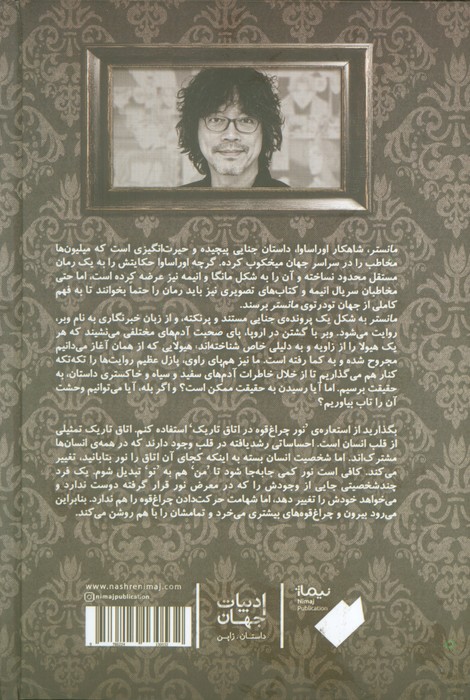 مانستر، شاهکار اوراساوا، داستان جنایی پیچیده و حیرت‌انگیزی است که میلیون‌ها
مخاطب را در سراسر جهان میخکوب کرده. گرچه اوراساوا حکایتش را به یک رمان
مستقل محدود نساخته و آن را به شکل مانگا و انیمه نیز عرضه کرده است، اما حتی
مخاطبان سریال انیمه و کتاب‌های تصویری نیز باید رمان را حتماً بخوانند تا به فهم
کاملی از جهان تودرتوی مانستر پرسند.
مانستر به شکل یک پرونده‌ی جنایی مستند و پرنکته، و از زبان خبرنگاری به نام وبر،
روایت می‌شود. وبر با گشتن در اروپا، پای صحبت آدم‌های مختلفی می‌نشیند که هر
یک هیولا را از زاویه و به دلیلی خاص شناخته‌اند، هیولایی که از همان آغاز می‌دانیم
مجروح شده و به کما رفته است. ما نیز هم‌پای راوی، پازل عظیم روایت‌ها را تکه‌تکه
کنار هم می‌گذاریم تا از خلال خاطرات آدم‌های سفید و سیاه و خاکستری داستان، به
حقیقت برسیم. اما آیا رسیدن به حقیقت ممکن است؟ و اگر بله، آیا می‌توانیم وحشت
آن را تاب بیاوریم؟
بگذارید از استعاره‌ی «نور چراغ‌قوه در اتاق تاریک» استفاده کنم. اتاق تاریک تمثیلی
از قلب انسان است. احساساتی رشدیافته در قلب وجود دارند که در همه‌ی انسان‌ها
مشترک‌اند. اما شخصیت انسان بسته به اینکه کجای آن اتاق را نور بتابانید، تغییر
می‌کند. کافی است نور کمی جابه‌جا شود تا «من» هم به «تو» تبدیل شوم. یک فرد
چندشخصیتی جایی از وجودش را که در معرض نور قرار گرفته دوست ندارد و
می‌خواهد خودش را تغییر دهد، اما شهامت حرکت‌دادن چراغ‌قوه را هم ندارد. بنابراین
می‌رود بیرون و چراغ‌قوه‌های بیشتری می‌خرد و تمامشان را با هم روشن می‌کند.
www.nashrenimaj.com
nimajpublication
ادبیات
جهان
داستان، ژاپن
نیماژ
Nimaj
Publication